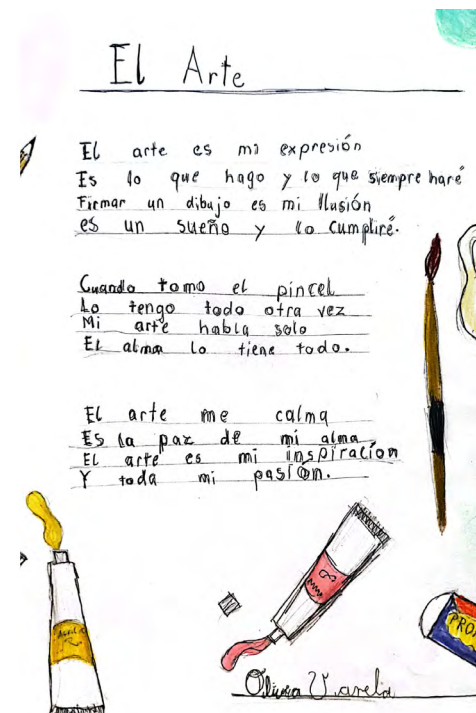 El Arte
El arte es mi expresión
Es lo que hago y lo que siempre haré
Firmar un dibujo es mi Ilusión
es un sueño y lo cumpliré.
Cuando tomo el pincel
Lo tengo todo otra vez
Mi arte habla solo
El alma lo tiene todo.
El arte me calma
Es la paz de mi alma
El arte es mi inspiración
Y toda mi pasión.
Olivia Varela